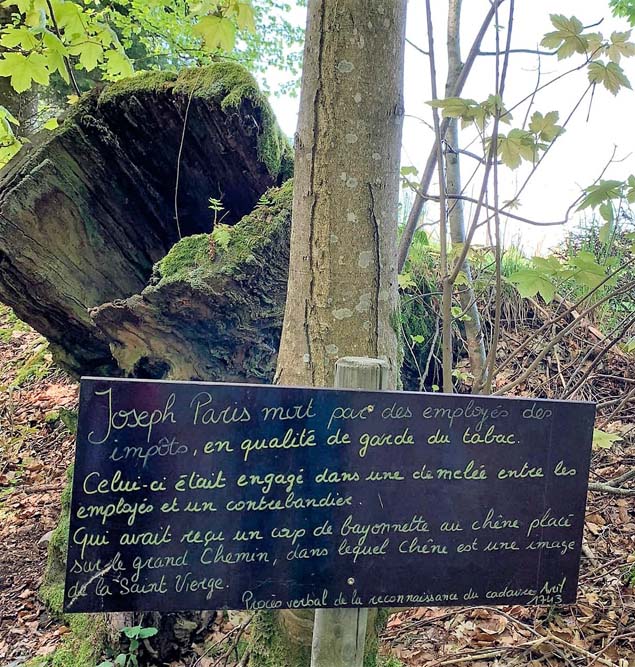 Joseph Paris mort par des employés des
impôts, en qualité de garde du tabac.
Celui-ci était engagé dans une demelée entre les
employés et un contrebandier.
Qui avait reçu un coup de bayonnette au chêne placé
sur le grand Chemin, dans lequel Chêne est une image
de la Saint Vierge.
Procès verbal de la reconnaissance du cadavre Avril
1743